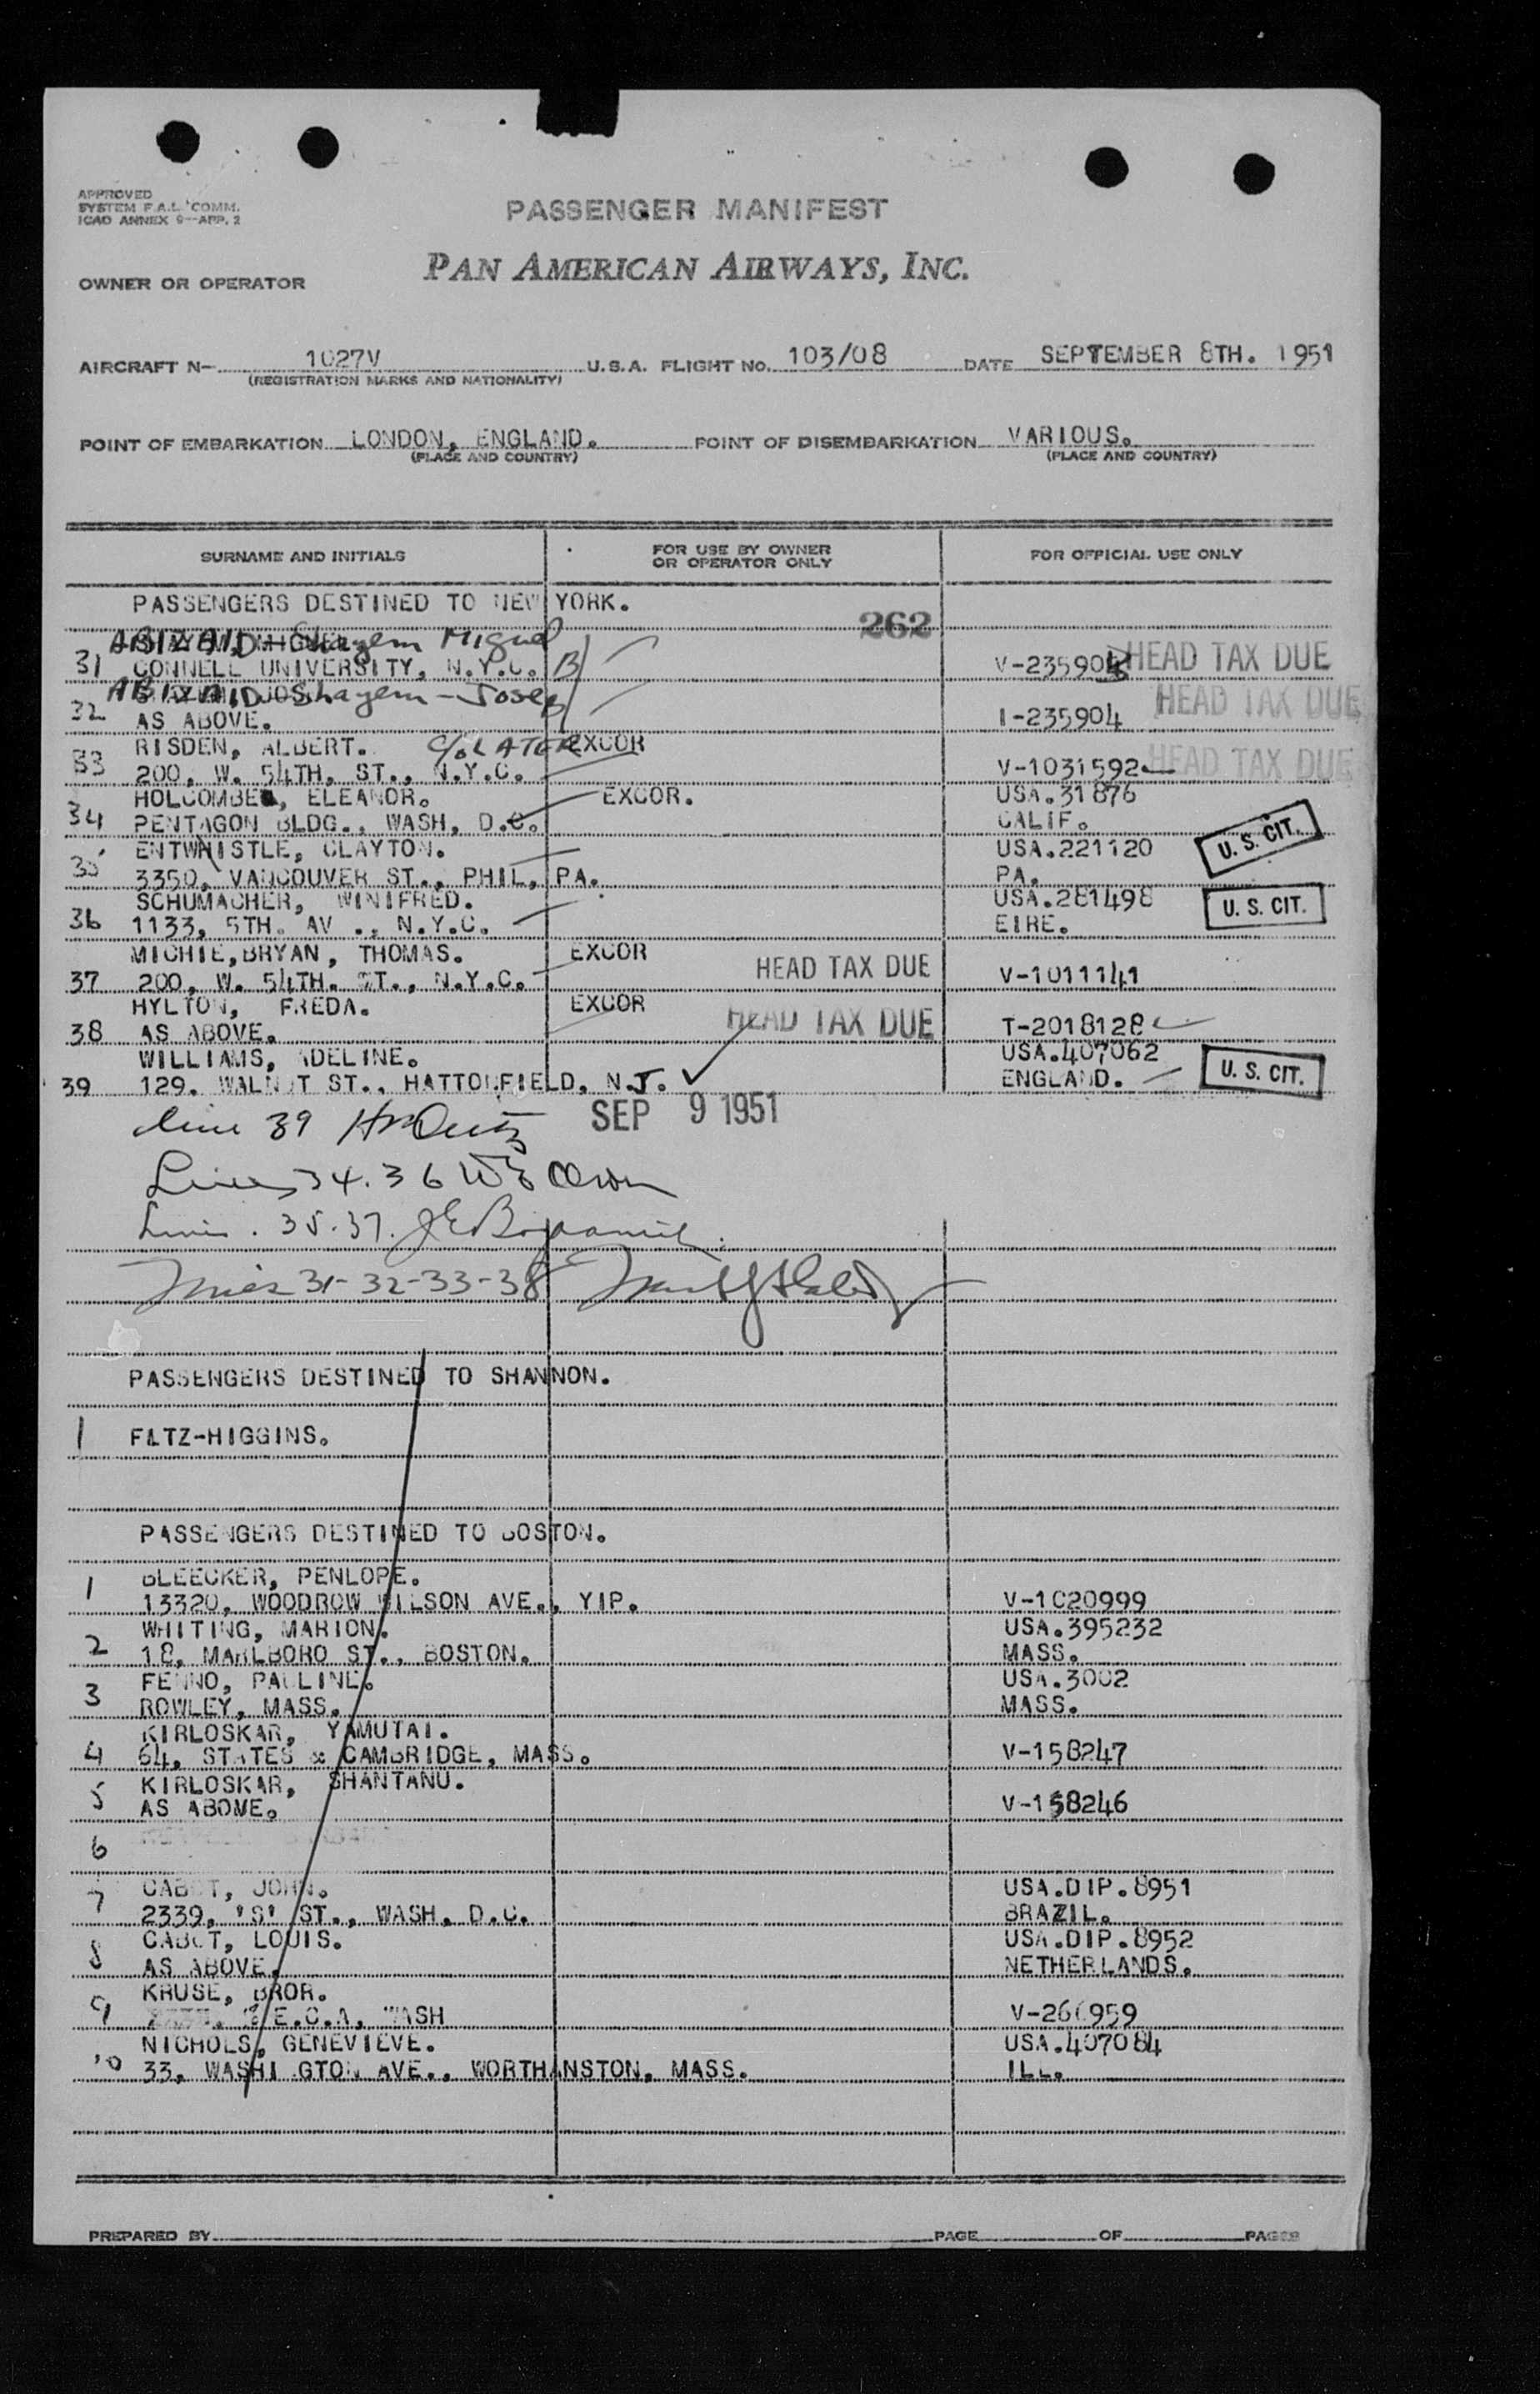 APPROVED
SYSTEM F.A.L. COMM.
ICAO ANNEX 9—APP. 2
PASSENGER MANIFEST
OWNER OR OPERATOR PAN AMERICAN AIRWAYS, INC.
AIRCRAFT N— 1027V U.S.A. FLIGHT NO. 103/08 DATE SEPTEMBER 8TH. 1951
(REGISTRATION MARKS AND NATIONALITY)
POINT OF EMBARKATION LONDON, ENGLAND. POINT OF DISEMBARKATION VARIOUS.
(PLACE AND COUNTRY) (PLACE AND COUNTRY)
SURNAME AND INITIALS FOR USE BY OWNER OR OPERATOR ONLY FOR OFFICIAL USE ONLY
PASSENGERS DESTINED TO NEW YORK.
262
ABIZAID Shayem Miguel
31 CONNELL UNIVERSITY, N.Y.C. B V-235905 HEAD TAX DUE
ABIZAID Shayem - Jose
32 AS ABOVE. B I-235904 HEAD TAX DUE
RISDEN, ALBERT. C/O LATER EXCOR
33 200, W. 54TH, ST., N.Y.C. V-1031592 HEAD TAX DUE
HOLCOMBE, ELEANOR. EXCOR. USA.31876
34 PENTAGON BLDG., WASH, D.C. CALIF. U. S. CIT.
ENTWHISTLE, CLAYTON. USA.221120
35 3350, VANCOUVER ST., PHIL, PA. PA.
SCHUMACHER, WINIFRED. USA.281498 U. S. CIT.
36 1133, 5TH. AV ., N.Y.C. EIRE.
MICHIE,BRYAN, THOMAS. EXCOR HEAD TAX DUE
37 200, W. 54TH. ST., N.Y.C. V-1011141
HYLTON, FREDA. EXCOR HEAD TAX DUE
38 AS ABOVE. T-2018128
WILLIAMS, ADELINE. USA.407062
39 129. WALNUT ST., HATTONFIELD, N.J. ENGLAND. U. S. CIT.
line 39 SEP 9 1951
Lines 34.36
Lines. 35.37.
Lines 31-32-33-38
PASSENGERS DESTINED TO SHANNON.
1 FITZ-HIGGINS.
PASSENGERS DESTINED TO BOSTON.
BLEECKER, PENLOPE.
1 13320, WOODROW WILSON AVE., YIP. V-1020999
WHITING, MARION. USA.395232
2 18, MARLBORO ST., BOSTON. MASS.
FENNO, PAULINE. USA.3002
3 ROWLEY, MASS. MASS.
KIRLOSKAR, YAMUTAI.
4 64, STATES & CAMBRIDGE, MASS. V-158247
KIRLOSKAR, SHANTANU.
5 AS ABOME. V-158246
6
CABOT, JOHN. USA.DIP.8951
7 2339, 'S' ST., WASH, D.C. BRAZIL.
CABOT, LOUIS. USA.DIP.8952
8 AS ABOVE. NETHERLANDS.
KRUSE, BROR.
9 E.C.A, WASH V-266959
NICHOLS, GENEVIEVE. USA.407084
10 33, WASHINGTON AVE., WORTHANSTON, MASS. ILL.
PREPARED BY PAGE OF PAGES